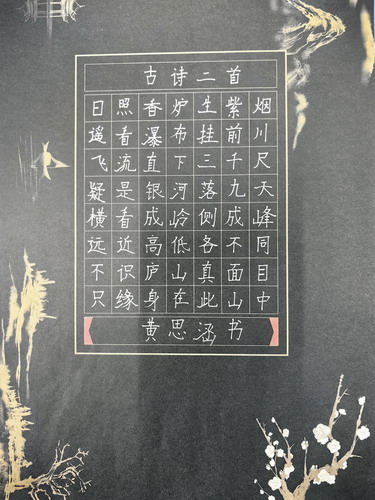 古诗二首
日照香炉生紫烟
遥看瀑布挂前川
飞流直下三千尺
疑是银河落九天
横看成岭侧成峰
远近高低各不同
不识庐山真面目
只缘身在此山中
黄思涵书